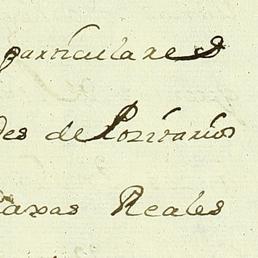 particulares
des de Pozitarios
Caxas Reales